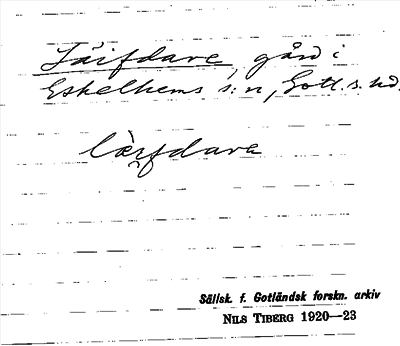 Läifdare, gård i
Eskelhems s:n, Gotl. s. hd.
läi̯fdara
Sällsk. f. Gotländsk forskn. arkiv
NILS TIBERG 1920—23